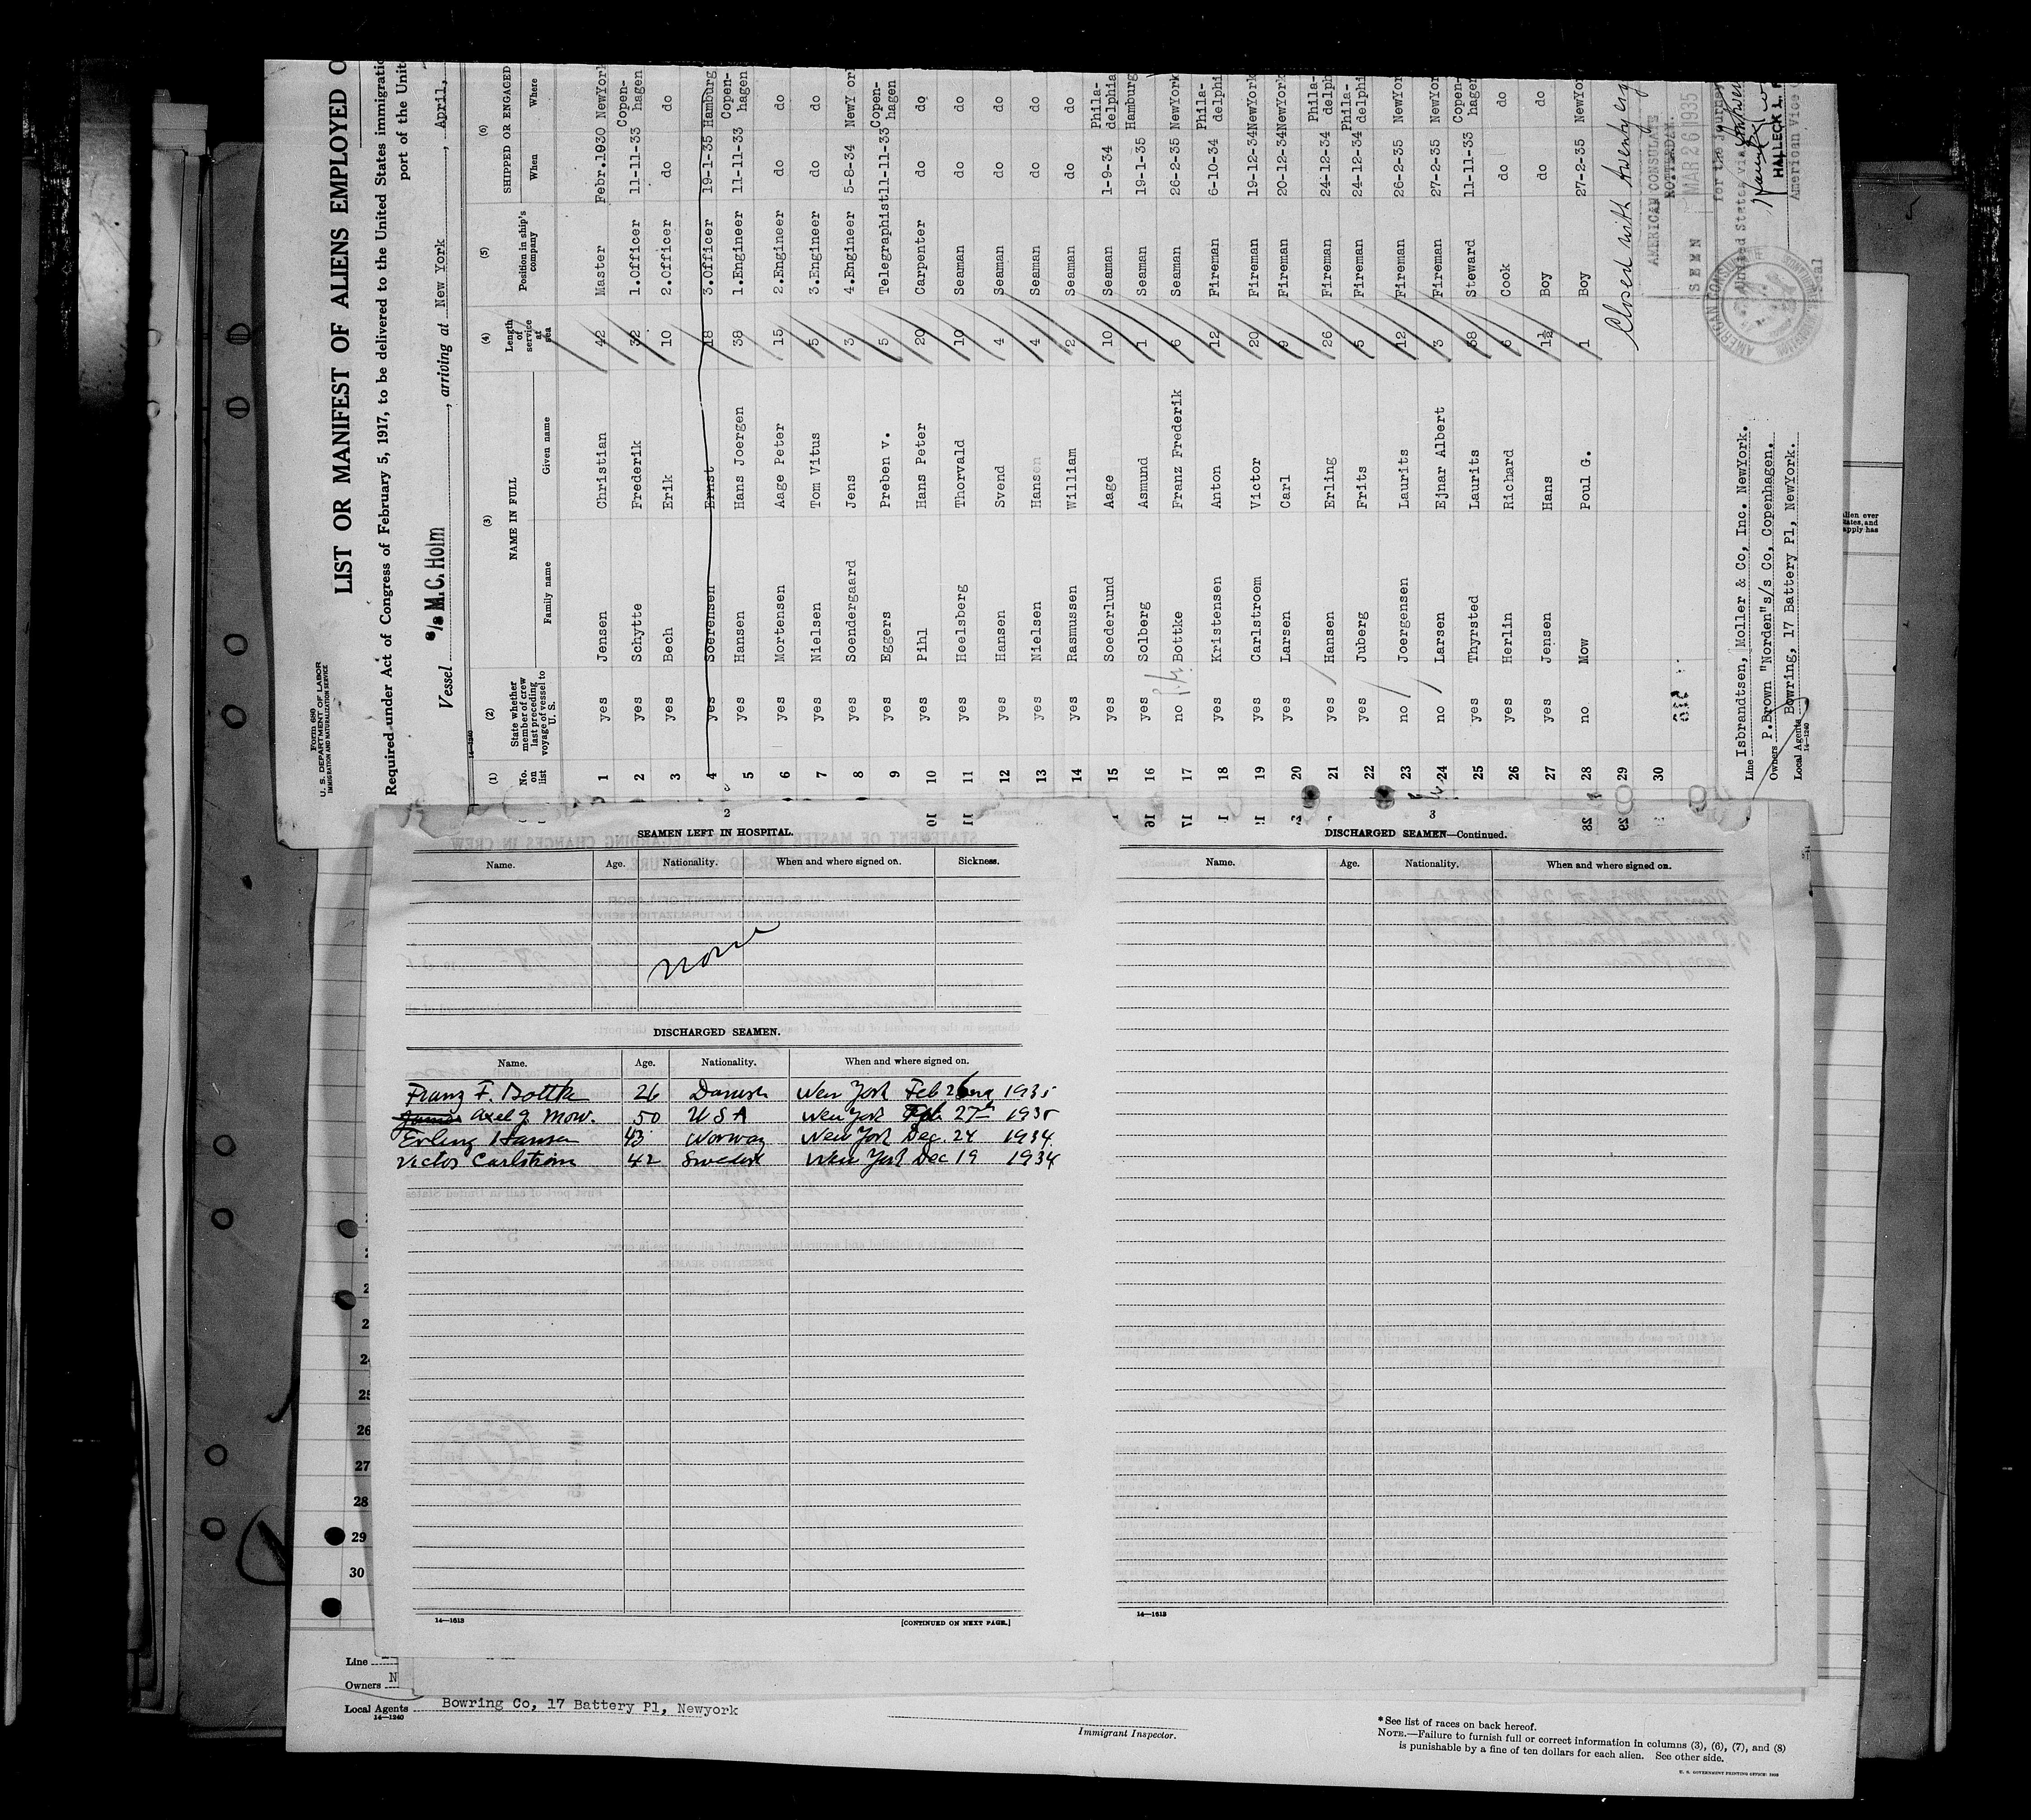 Form 680
U. S. DEPARTMENT OF LABOR
IMMIGRATION AND NATURALIZATION SERVICE
LIST OR MANIFEST OF ALIENS EMPLOYED O
Required under Act of Congress of February 5, 1917, to be delivered to the United States immigratio
port of the Unite
Vessel s/s M.C.Holm, arriving at New York, April,
14-1240
(1) (2) (3) (4) (5) (6)
No. on list
State whether member of crew last preceding voyage of vessel to U. S.
NAME IN FULL
Family name Given name
Length of service at sea
Position in ship's company
SHIPPED OR ENGAGED
When Where
1 yes Jensen Christian 42 Master Febr.1930 NewYork
2 yes Schytte Frederik 32 1.Officer 11-11-33 Copen-hagen
3 yes Bech Erik 10 2.Officer do do
4 yes Soerensen Ernst 18 3.Officer 19-1-35 Hamburg
5 yes Hansen Hans Joergen 38 1.Engineer 11-11-33 Copen-hagen
6 yes Mortensen Aage Peter 15 2.Engineer do do
7 yes Nielsen Tom Vitus 5 3.Engineer do do
8 yes Soendergaard Jens 3 4.Engineer 5-8-34 NewY or
9 yes Eggers Preben v. 5 Telegraphist 11-11-33 Copen-hagen
10 yes Pihl Hans Peter 20 Carpenter do do
11 yes Heelsberg Thorvald 10 Seaman do do
12 yes Hansen Svend 4 Seaman do do
13 yes Nielsen Hansen 4 Seaman do do
14 yes Rasmussen William 2 Seaman do do
15 yes Soederlund Aage 10 Seaman 1-9-34 Phila-delphia
16 yes Solberg Asmund 1 Seaman 19-1-35 Hamburg
17 no Bottke Franz Frederik 6 Seaman 26-2-35 NewYork
18 yes Kristensen Anton 12 Fireman 6-10-34 Phila-delphi
19 yes Carlstroem Victor 20 Fireman 19-12-34 NewYork
20 yes Larsen Carl 9 Fireman 20-12-34 NewYork
21 yes Hansen Erling 26 Fireman 24-12-34 Phila-delph
22 yes Juberg Frits 5 Fireman 24-12-34 Phila-delphi
23 no Joergensen Laurits 12 Fireman 26-2-35 NewYor
24 no Larsen Ejnar Albert 3 Fireman 27-2-35 NewYor
25 yes Thyrsted Laurits 38 Steward 11-11-33 Copen-hagen
26 yes Herlin Richard 6 Cook do do
27 yes Jensen Hans 1½ Boy do do
28 no Mow Poul G. 1 Boy 27-2-35 NewYor
29
30
Closed with
AMERICAN CONSULATE
ROTTERDAM.
SEEN MAR 26 1935
for the journey
United States via
HALLECK L. R
American Vice C
Seal
Line Isbrandtsen, Moller & Co, Inc. NewYork.
Owners P.Brown "Norden"s/s Co, Copenhagen.
Local Agents Bowring, 17 Battery Pl, NewYork.
14-1240
2
SEAMEN LEFT IN HOSPITAL.
Name. Age. Nationality. When and where signed on. Sickness.
none
DISCHARGED SEAMEN.
Name. Age. Nationality. When and where signed on.
Franz F. Bottke 26 Danish New York Feb 26 1935
Axel J. Mow. 50 USA New York Feb. 27th 1935
Erling Hansen 43 Norway New York Dec. 24 1934.
Victor Carlstrom 42 Swedish New York Dec 19 1934
14—1613
[CONTINUED ON NEXT PAGE.]
3
DISCHARGED SEAMEN—Continued.
Name. Age. Nationality. When and where signed on.
14—1613
25
26
27
28
29
30
Line
Owners N
Local Agents Bowring Co, 17 Battery Pl, Newyork
14—1240
Immigrant Inspector.
*See list of races on back hereof.
NOTE.—Failure to furnish full or correct information in columns (3), (6), (7), and (8)
is punishable by a fine of ten dollars for each alien. See other side.
U. S. GOVERNMENT PRINTING OFFICE: 1932